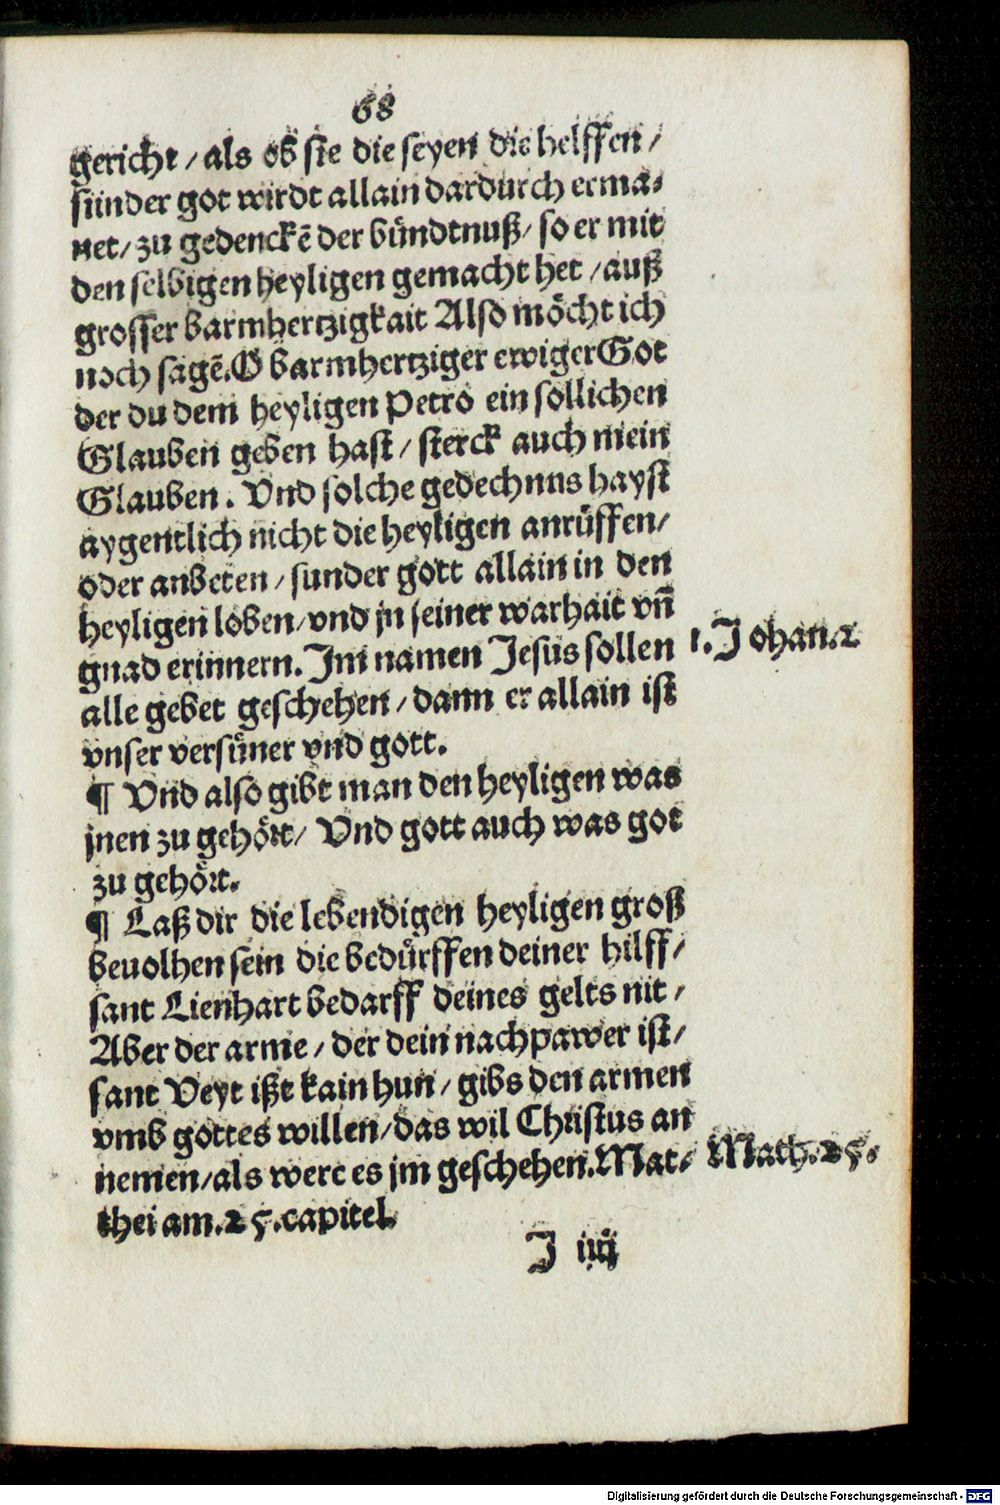 68
gericht / als ob sie die seyen die helffen /
sunder got wirdt allain dardurch erma⸗
net / zu gedenckẽ der bündtnuß / so er mit
den selbigen heyligen gemacht het / auß
grosser barmhertzigkait Also möcht ich
noch sagẽ. O barmhertziger ewiger Got
der du dem heyligen Petro ein sollichen
Glauben geben hast / sterck auch mein
Glauben. Vnd solche gedechnus hayst
aygentlich nicht die heyligen anrüffen /
oder anbeten / sunder gott allain in den
heyligen loben / vnd jn seiner warhait vñ
gnad erinnern. Im namen Jesus sollen
1. Johan. 2
alle gebet geschehen / dann er allain ist
vnser versüner vnd gott.
¶ Vnd also gibt man den heyligen was
jnen zu gehört / Vnd gott auch was got
zu gehört.
¶ Laß dir die lebendigen heyligen groß
beuolhen sein die bedürffen deiner hilff /
sant Lienhart bedarff deines gelts nit /
Aber der arme / der dein nachpawer ist /
sant Veyt ißt kain hun / gibs den armen
vmb gottes willen / das wil Christus an
nemen / als were es jm geschehen. Mat⸗
Math. 25.
thei am. 25. capitel.
J iiij
Digitalisierung gefördert durch die Deutsche Forschungsgemeinschaft - DFG